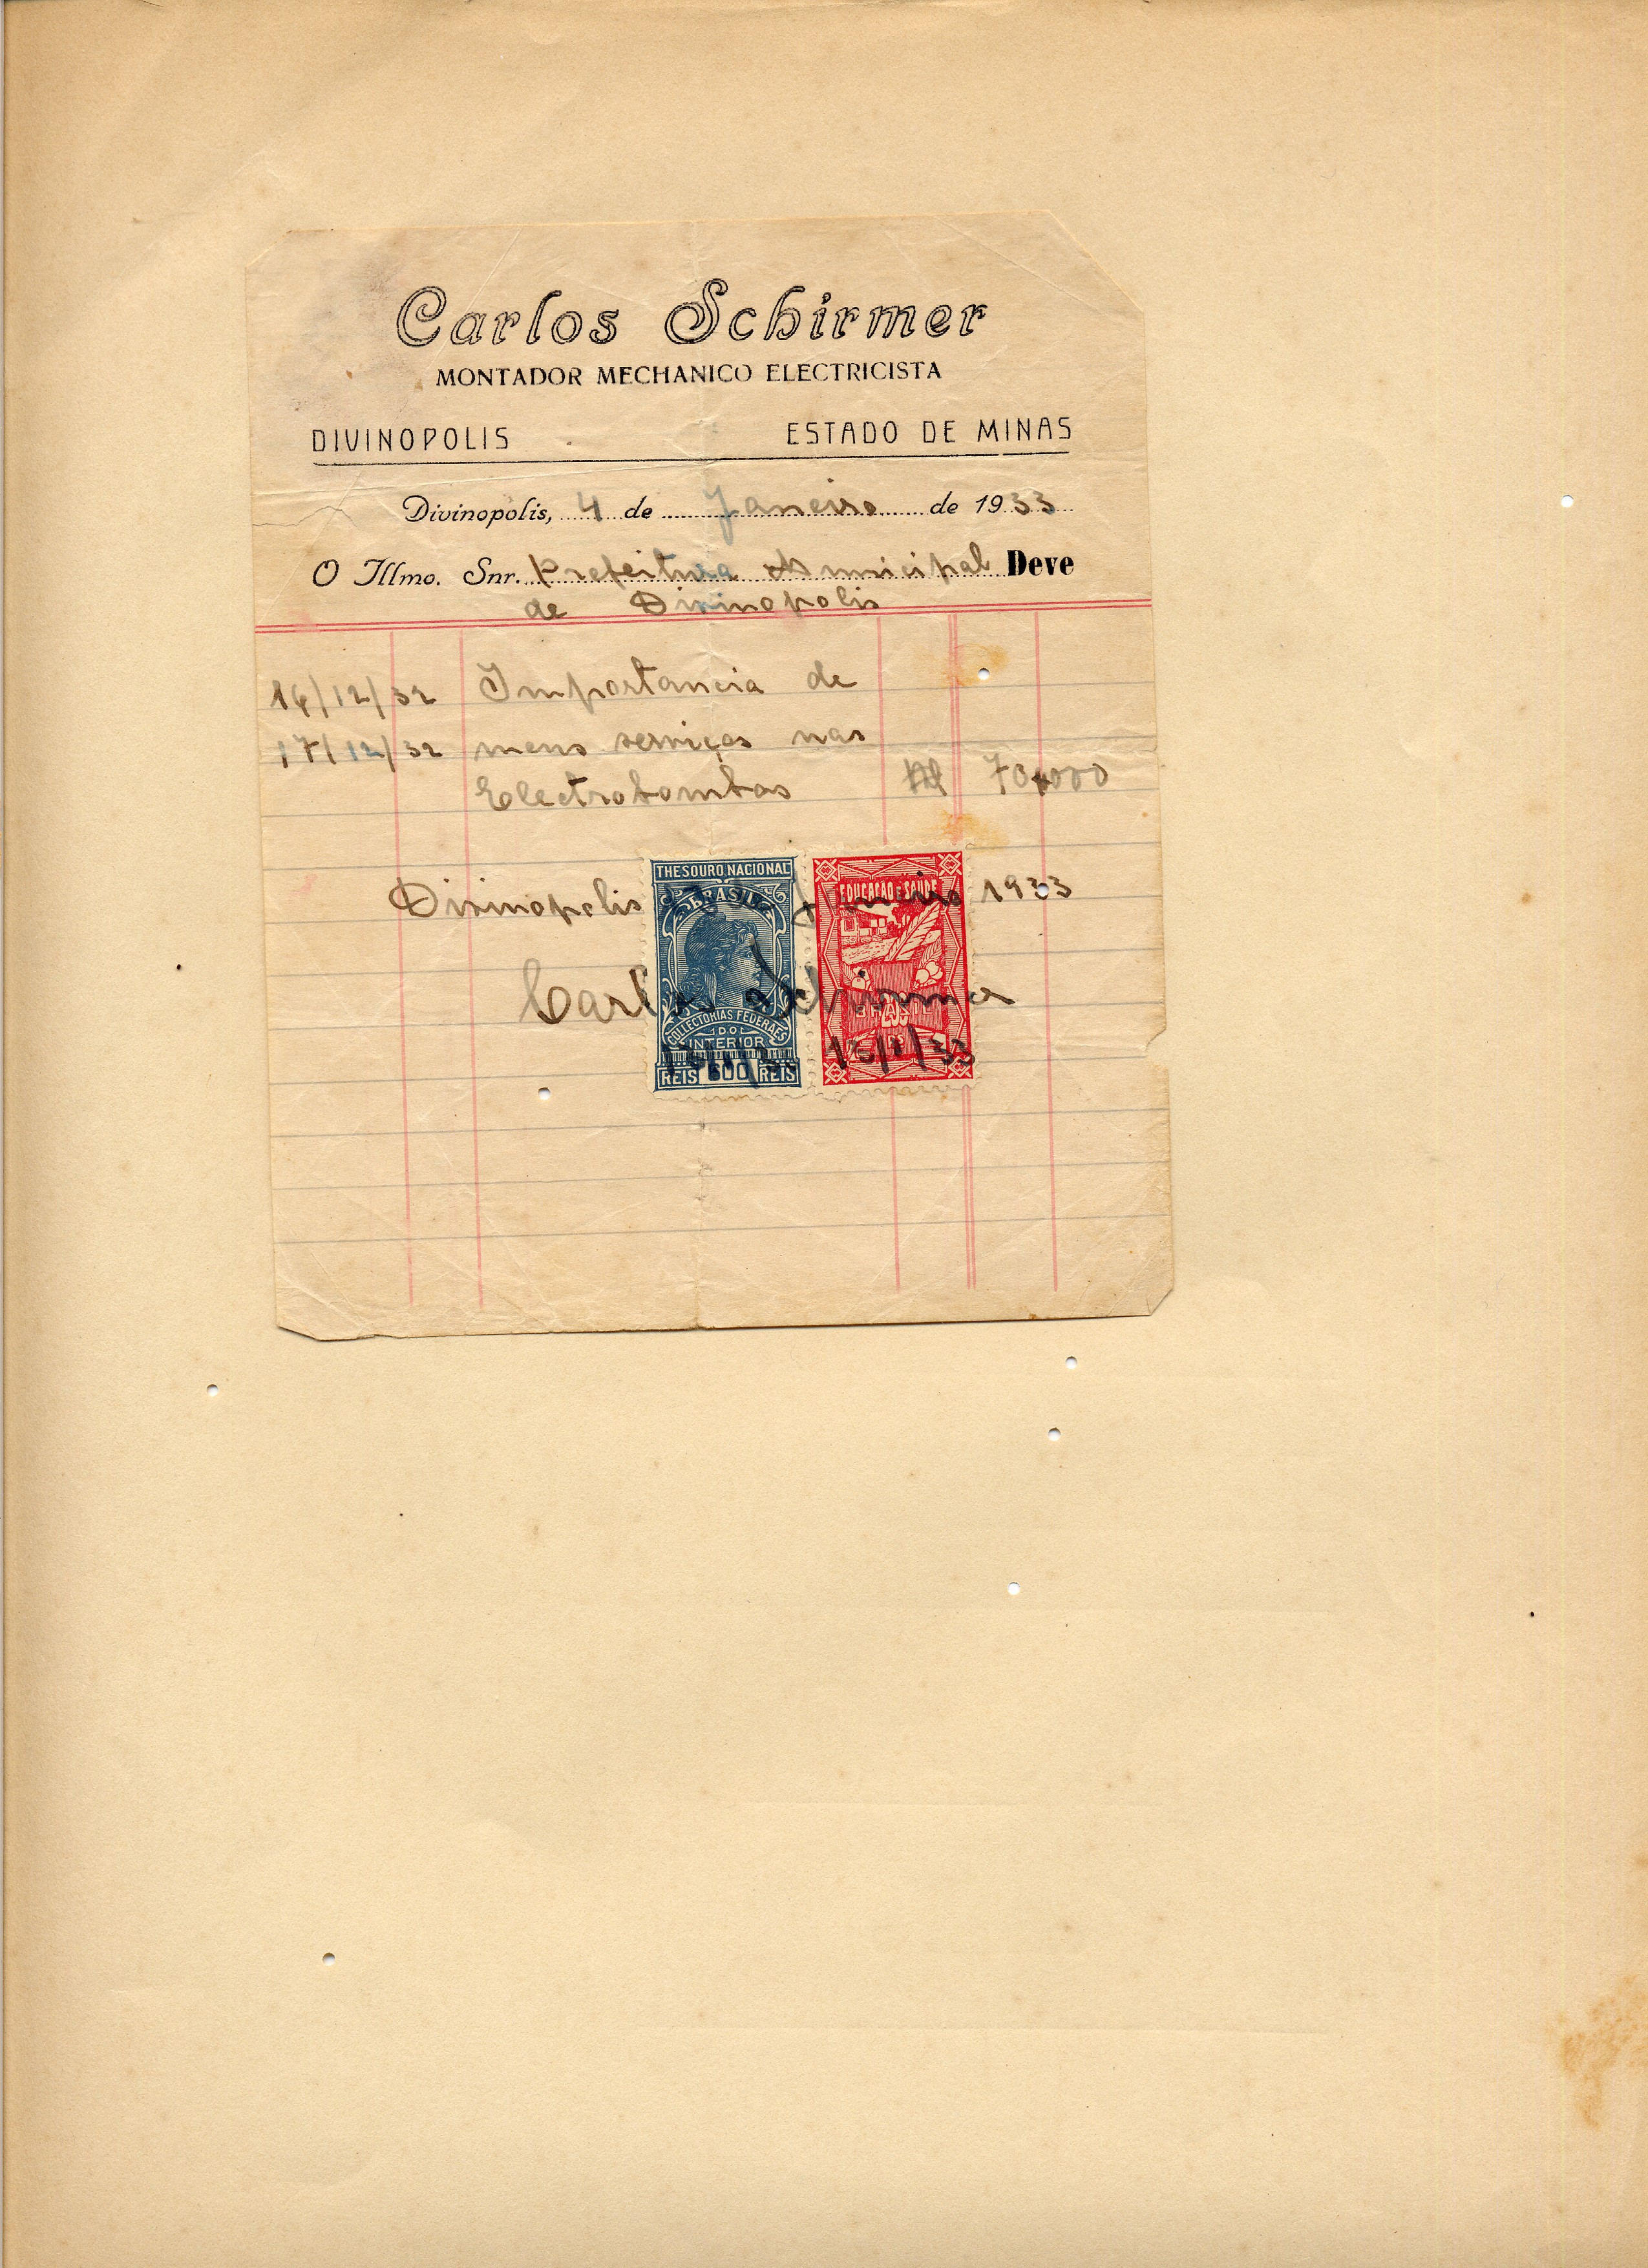 Carlos Schirmer
MONTADOR MECHANICO ELECTRICISTA
DIVINOPOLIS ESTADO DE MINAS
Divinopolis, 4 de Janeiro de 1933
O Illmo. Snr. Prefeitura Municipal Deve
de Divinopolis
16/12/32 Importancia de
17/12/32 meus serviços nas
Electrobombas 70,000
THESOURO NACIONAL
BRASIL
EDUCAÇÃO E SAUDE
Divinopolis Janeiro 1933
Carlos Schirmer
COLLECTORIAS FEDERAES
DO
INTERIOR
REIS 600 REIS
BRASIL
200
RS
16/1/33